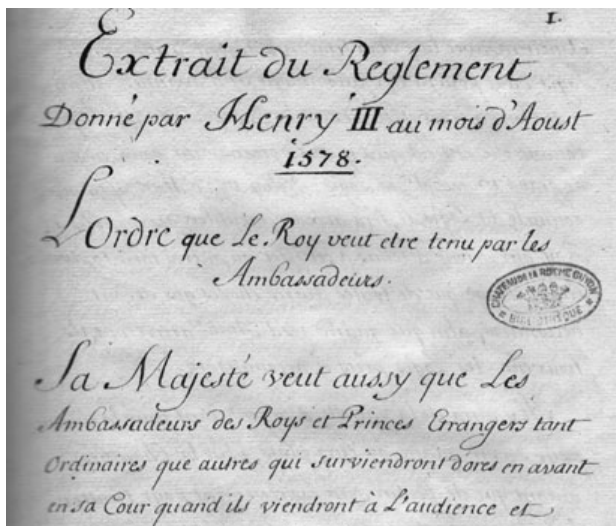 1.
Extrait du Reglement
Donné par Henry III au mois d'Aoust
1578.
L'Ordre que Le Roy veut etre tenu par les
Ambassadeurs.
CHATEAU DE LA ROCHE GUYON
BIBLIOTHEQUE
Sa Majesté veut aussy que Les
Ambassadeurs des Roys et Princes Etrangers tant
Ordinaires que autres qui surviendront dores en avant
en sa Cour quand ils viendront à L'audience et